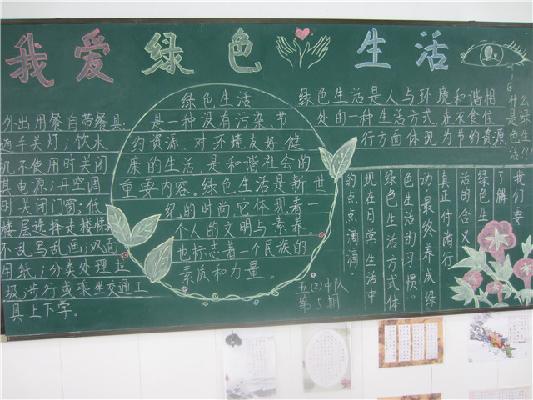 我爱绿色生活
外出用餐自带餐具
随手关灯；饮水
机不使用时关闭
其电源；开空调
时关闭门窗；低
楼层选择走楼梯
不乱写乱画；双面
用纸；分类处理垃
圾；步行或乘坐交通工
具上下学。
绿色生活
是一种没有污染、节
约资源、对环境友好、健
康的生活是和谐社会的
重要内容。绿色生活是新世
纪的时尚，它体现着一
个人的文明与素养
也标志着一个民族的
素质和力量。
五(2)中队
第5期
绿色生活是人与环境和谐相
处的一种生活方式，在衣食住
行方面体现为节约资源
什么是绿色生活???
我们要了解
绿色生
活的含义
真正付诸行
动，最终养成绿
色生活的习惯。
绿色生活方式体
现在日常生活中
的点点滴滴